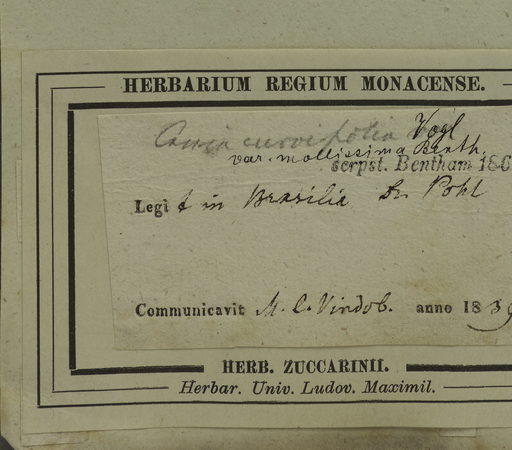 HERBARIUM REGIUM MONACENSE.
Cassia curvifolia Vogl
var. mollissima Benth.
scrpst. Bentham 186
Legit in Brasilia Dr. Pohl
Communicavit M. C. Vindob. anno 1839
HERB. ZUCCARINII.
Herbar. Univ. Ludov. Maximil.